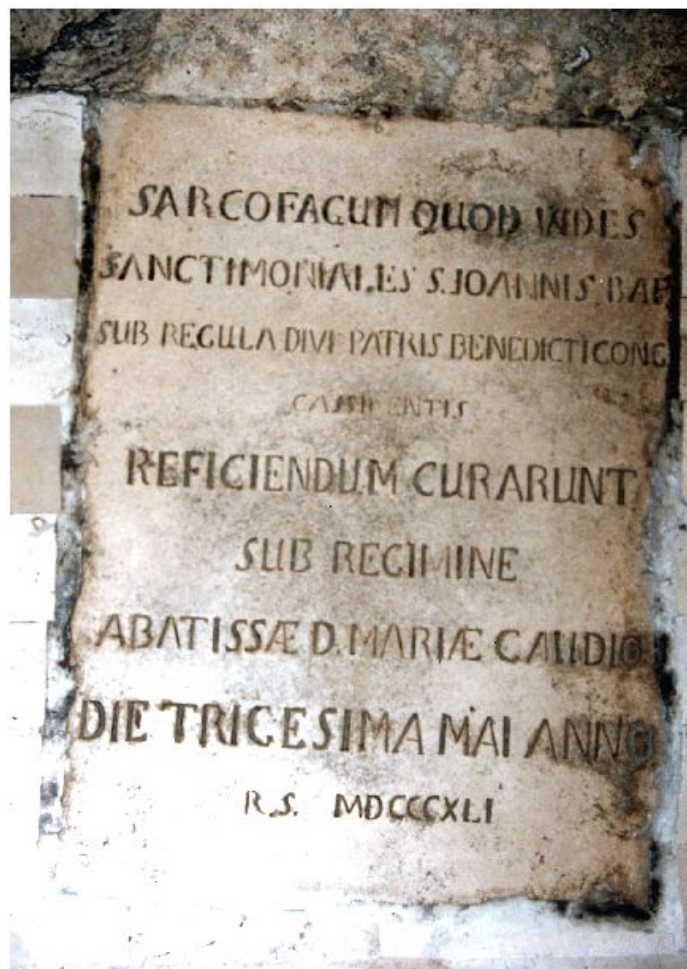 SARCOFAGUM QUOD INDES
SANCTIMONIALES S. JOANNIS BAP
SUB REGULA DIVI PATRIS BENEDICTI CONG
REFICIENDUM CURARUNT
SUB REGIMINE
ABATISSÆ D. MARIÆ GAUDIO
DIE TRIGESIMA MAI ANNO
R.S. MDCCCXLI